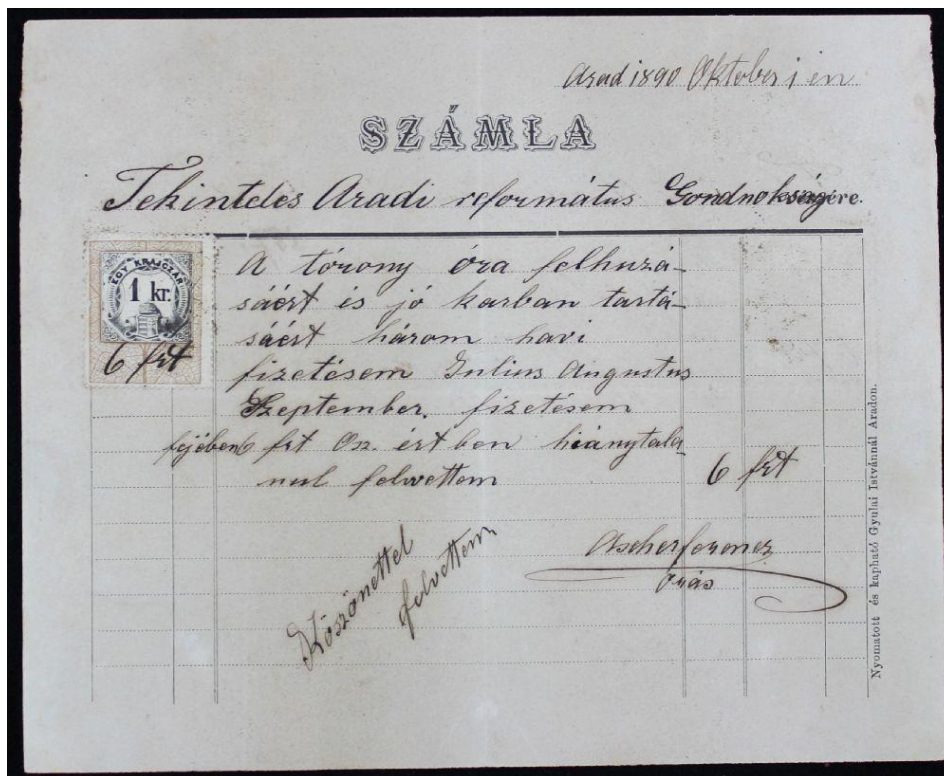 Arad 1890 Oktober 1 én
SZÁMLA
Tekintetes Aradi református Gondnokságére.
EGY KRAJCZÁR
1 kr.
6 frt
A tórony óra felhuzá-
sáért és jó karban tartá-
sáért három havi
fizetésem Julius Augustus
Szeptember. fizetésem
fejében 6 frt Oz. értben hiánytala-
nul felvettem 6 frt
Köszönettel
felvettem
Ascher ferencz
Órás
Nyomatott és kapható Gyulai Istvánnál Aradon.